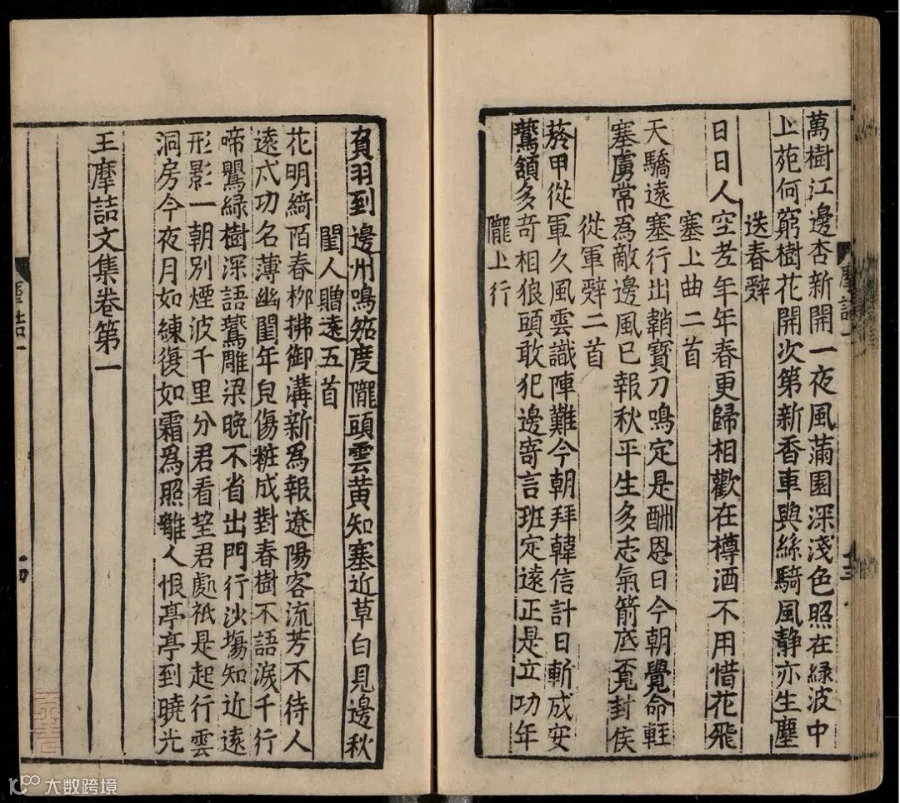 萬樹江邊杏新開一夜風蒲園深淺色照在綠波中
上苑何窮樹花開次第新香車與絲騎風靜亦生塵
送春辤
日日人空老年年春更歸相歡在樽酒不用惜花飛
塞上曲二首
天驕遠塞行出鞘寶刀鳴定是酬恩日今朝覺命輊
塞虜常為敵邊風已報秋平生多志氣箭底覓封侯
從軍辤二首
髇甲從軍久風雲識陣難今朝拜韓信計日斬成安
鷰頷多奇相狼頭敢犯邊寄言班定遠正是立功年
隴上行
摩詰一
十三
負羽到邊州鳴笳度隴頭雲黃知塞近草白見邊秋
閨人贈遠五首
花明綺陌春柳拂御溝新為報遼陽客流芳不待人
遠戍功名薄幽閨年皃傷粧成對春樹不語淚千行
啼鸎綠樹深語鷰雕梁晚不省出門行沙塲知近遠
形影一朝別煙波千里分君看望君處祇是起行雲
洞房今夜月如練復如霜為照離人恨亭亭到曉光
王摩詰文集卷第一
摩詰一
十四
大数跨境